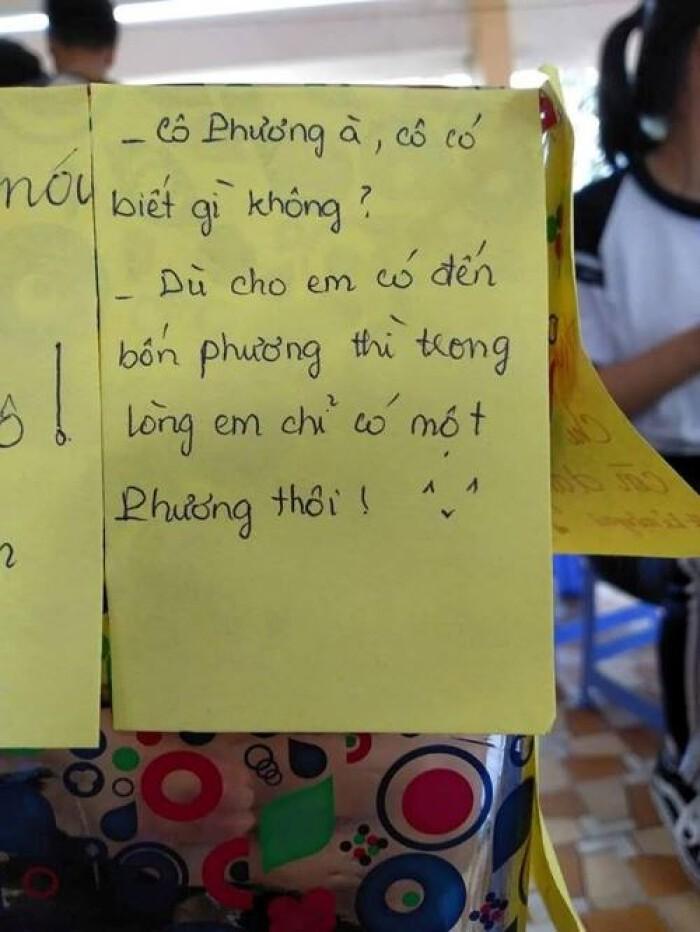 nói
ô!
- Cô Phương à, cô có
biết gì không?
- Dù cho em có đến
bốn phương thì trong
lòng em chỉ có một
Phương thôi! ^.^